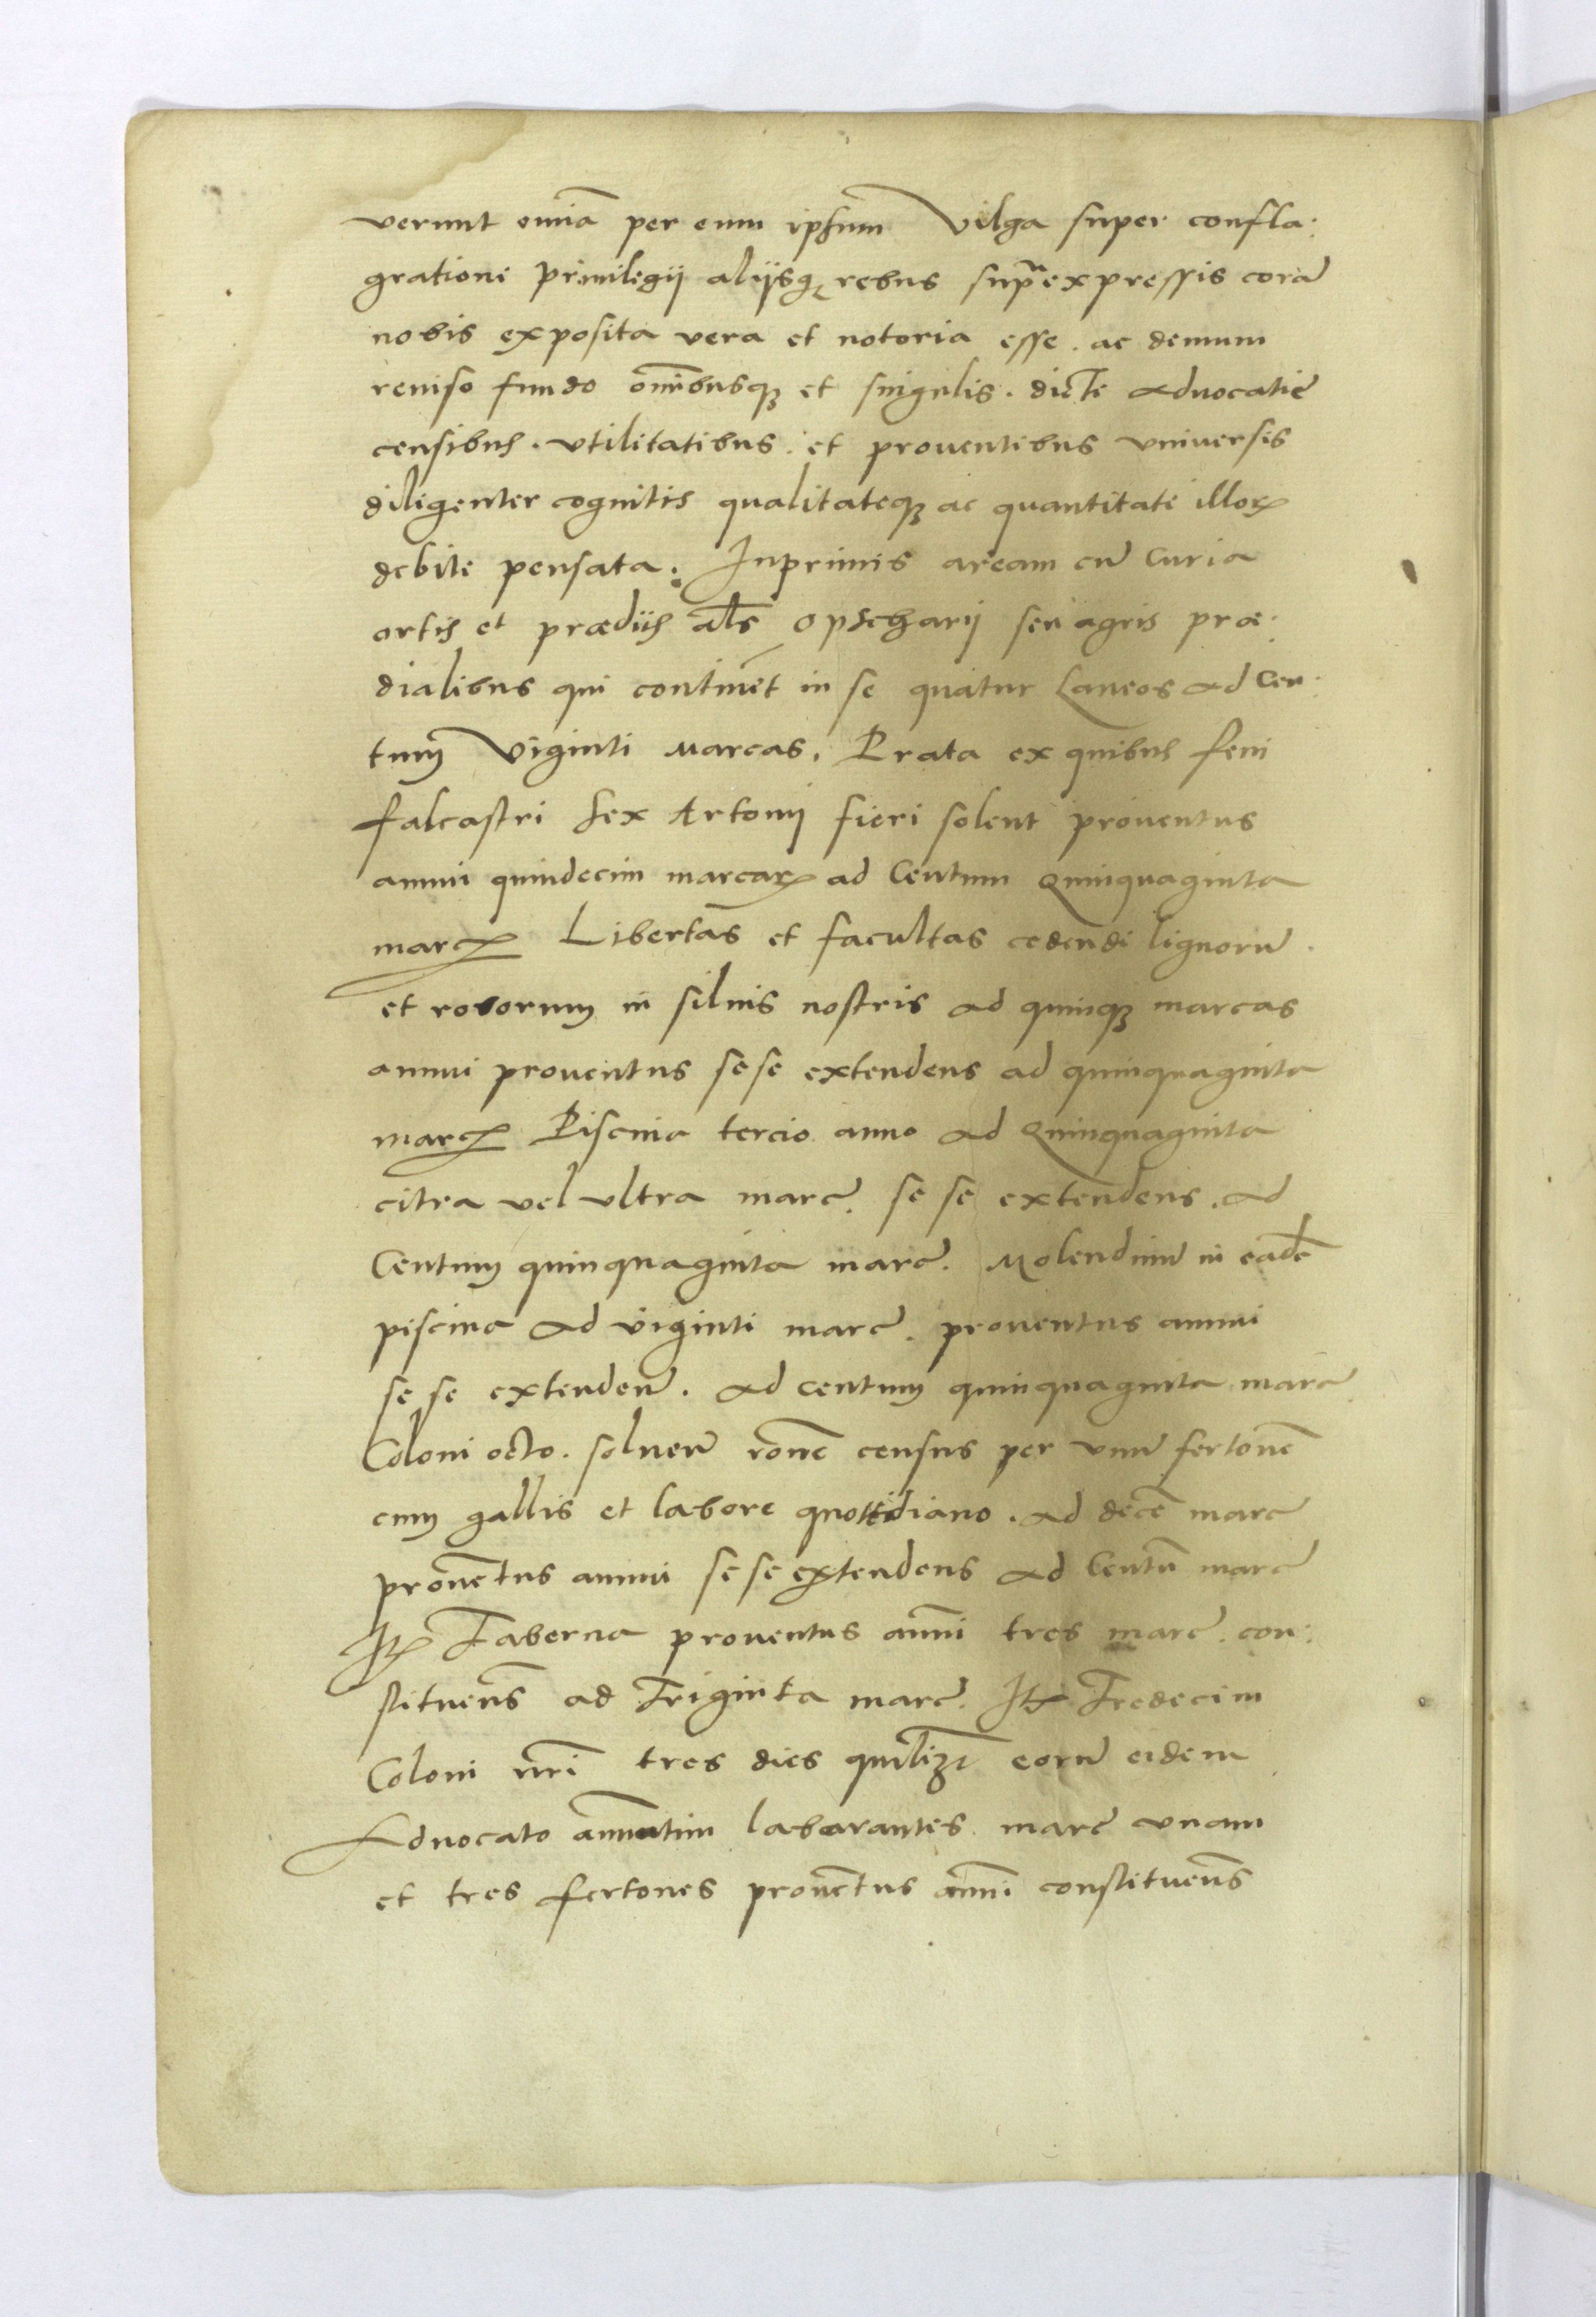 verunt omīa per eum ipsum Vilga super confla:
gratione priuilegij alijsq; rebus supra expressis corā
nobis exposita vera et notoria esse . ac demum
reuiso fundo omnibusq; et singulis . dicte aduocatie
censibus . vtilitatibus . et prouentibus vniuersis
diligenter cognitis qualitateq; ac quantitate illoꝝ
debite pensata . Inprimis aream cū Curia
ortis et prædiis als opscharij seu agris præ:
dialibus qui continēt in se quatur Laneos ad Cen:
tum Viginti Marcas . Prata ex quibus feni
falcastri sex Artonij fieri solent prouentus
annui quindecim marcaꝝ ad Centum Quinquaginta
marcꝝ Libertas et facultas cedendi lignorū .
et roborum in siluis nostris ad quinq; marcas
annui prouentus sese extendens ad quinquaginta
marcꝝ Piscina tercio anno ad Quinquaginta
citra vel vltra marc̄ . se se extendens . ad
Centum quinquaginta marc̄ . Molendinū in eadē
piscina ad viginti marc̄ . prouentus annui
se se extendeñ . ad centum quinquaginta marc̄
Coloni octo . solueñ rōne census per vnū fertonē
cum gallis et labore quottidiano . ad decē marc̄
prouētus annui se se extendens ad Centū marc̄
Itꝫ Taberna proventus anni tres marc̄ . con:
stituens ad Triginta marc̄ . Itꝫ Tredecim
Coloni nr̄i tres dies quilibꝫ eorū eidem
Aduocato annuatim laborantes marc̄ vnam
et tres fertones prouētus anni constituens